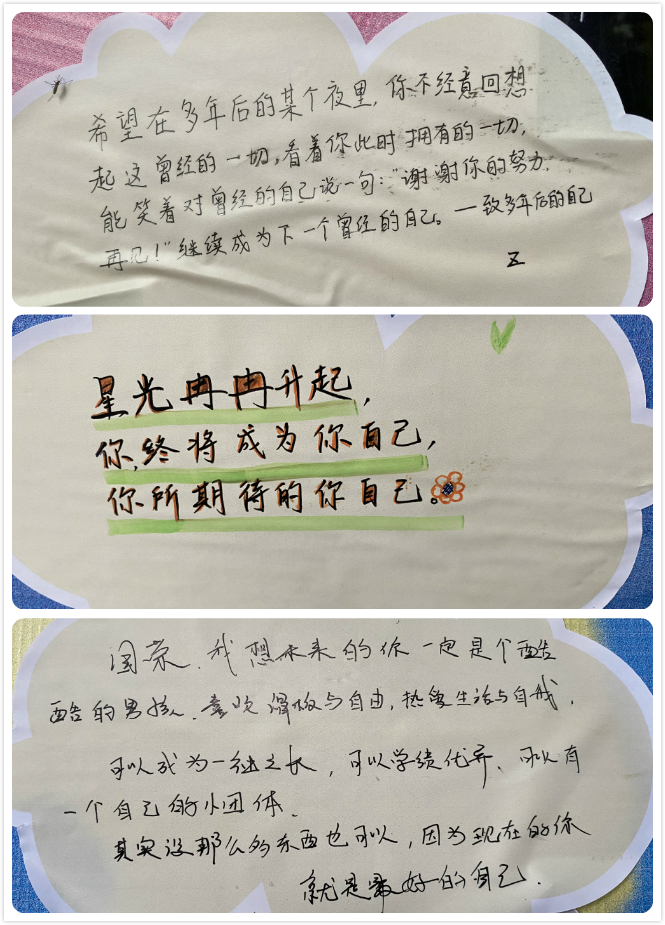 希望在多年后的某个夜里,你不经意回想
起这曾经的一切,看着你此时拥有的一切,
能笑着对曾经的自己说一句:"谢谢你的努力,
再见!"继续成为下一个曾经的自己。—致多年后的自己
星光冉冉升起,
你终将成为你自己,
你所期待的你自己。
国荣.我想未来的你一定是个酷
酷的男孩.喜欢滑板与自由,热爱生活与自我.
可以成为一组之长,可以学绩优异、可以有
一个自己的小团体.
其实没那么多东西也可以,因为现在的你
就是最好的自己.